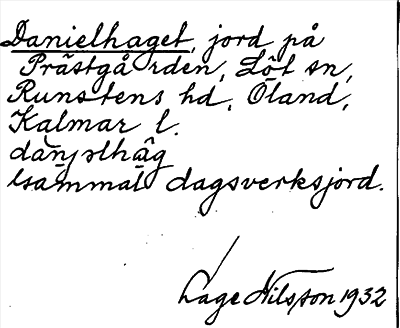 Danielhaget, jord på
Prästgården, Löt sn,
Runstens hd, Öland,
Kalmar l.
Gammal dagsverksjord.
Lage Nilsson 1932